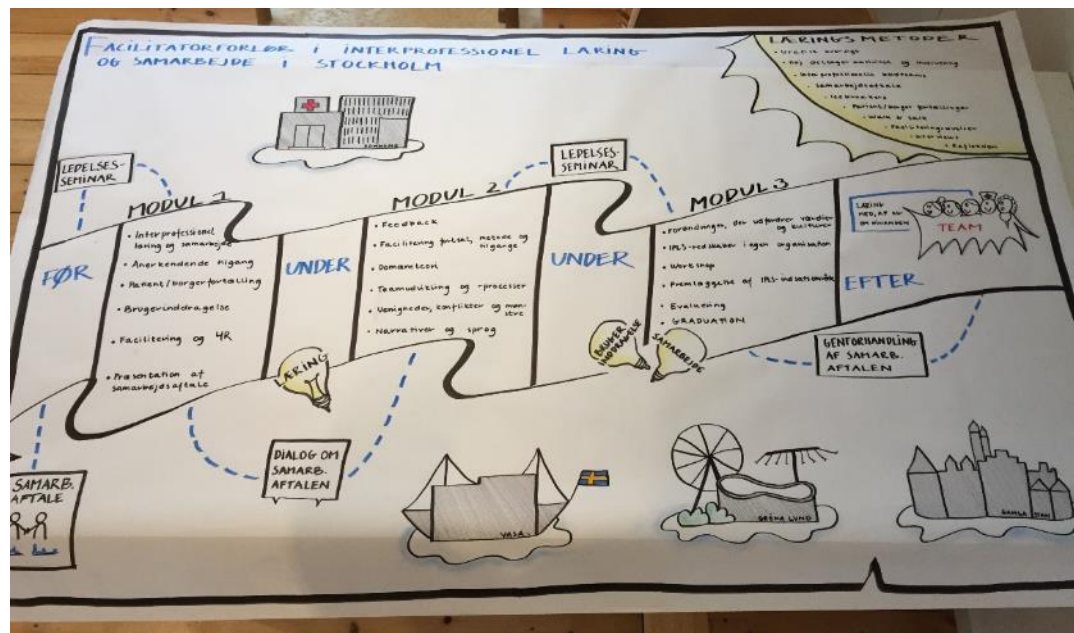 FACILITATORFORLØB I INTERPROFESSIONEL LÆRING
OG SAMARBEJDE I STOCKHOLM
LÆRINGSMETODER
• Høj deltageraktivitet og involvering
• Interprofessionelle
• Samarbejdsaftale
• Icebreakers
• Patient/borger fortællinger
• Walk & talk
• Faciliteringsøvelser
• Interviews
• Refleksion
LEDELSES-
SEMINAR
LEDELSES-
SEMINAR
FØR
MODUL 1
• Interprofessionel
læring og samarbejde
• Anerkendende tilgang
• Patient/borgerfortælling
• Brugerinddragelse
• Facilitering og 4R
• Præsentation af
samarbejdsaftale
UNDER
MODUL 2
• Feedback
• Facilitering fortsat, metode og
tilgange
• Domæneteori
• Teamudvikling og -processer
• Uenigheder, konflikter og møn-
stre
• Narrativer og sprog
UNDER
MODUL 3
• Forandringer, der udfordrer værdier
og kulturer
• IPLS-redskaber i egen organisation
• Workshop
• Fremlæggelse af IPLS-indsatsområde
• Evaluering
• GRADUATION
EFTER
LÆRING
MED, AF OG
OM HINANDEN
TEAM
LÆRING
BRUGER
INDDRAGELSE
SAMARBEJDE
GENFORHANDLING
AF SAMARB.
AFTALEN
DIALOG OM
SAMARB.
AFTALEN
SAMARB.
AFTALE
VASA
GRÖNA LUND
GAMLA STAN